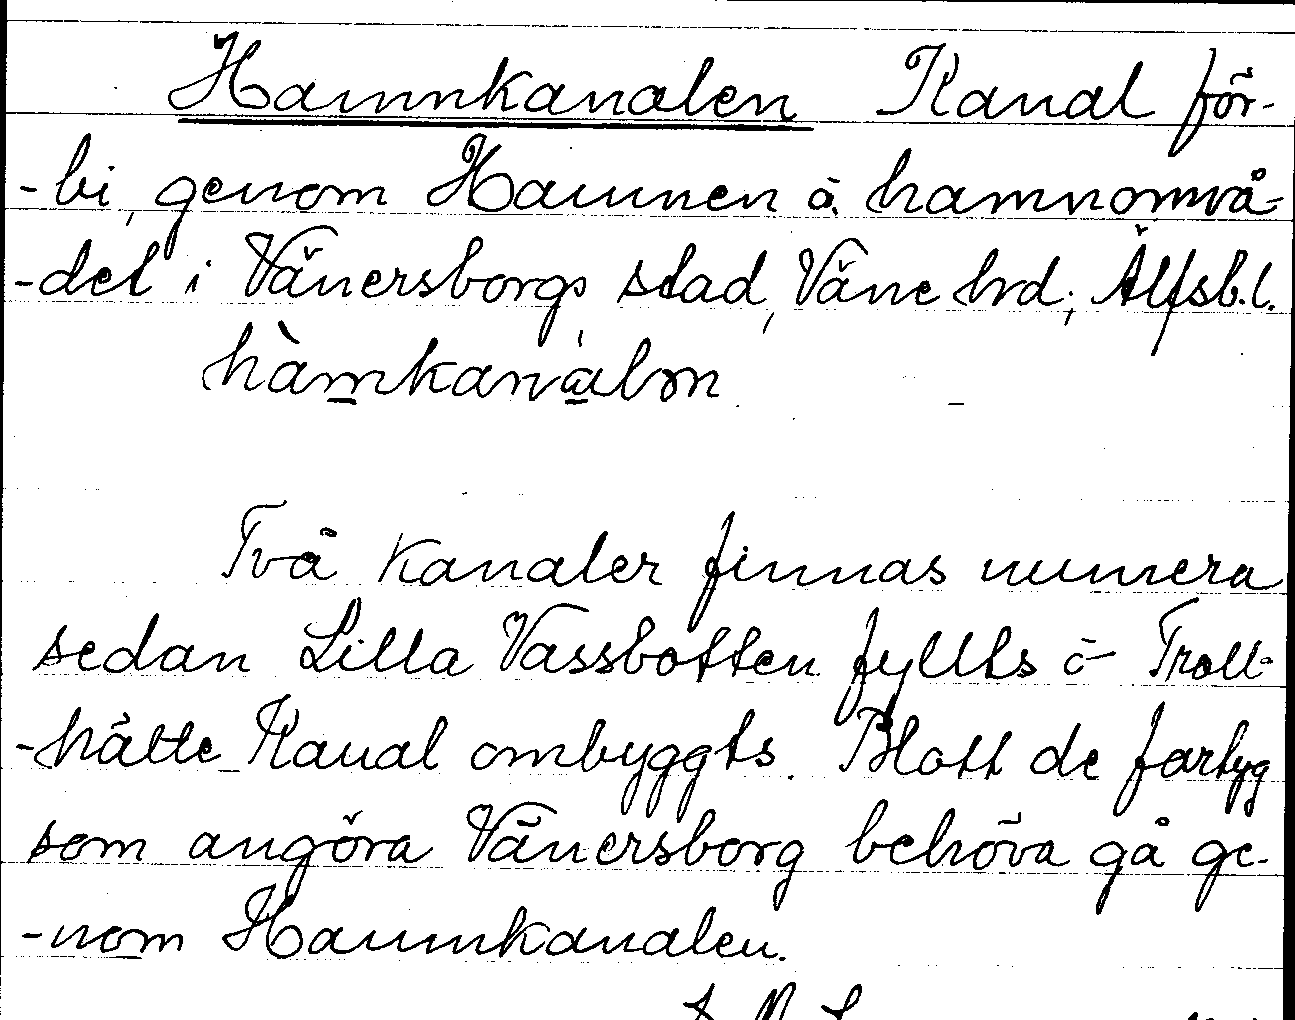 Hamnkanalen Kanal för-
-bi, genom Hamnen o. hamnområ-
-det i Vänersborgs stad, Väne hrd; Älfsb.l.
hàmkanálən
Två Kanaler finnas numera
sedan Lilla Vassbotten fyllts o Troll-
-hätte Kanal ombyggts. Blott de fartyg
som angöra Vänersborg behöva gå ge-
-nom Hamnkanalen.